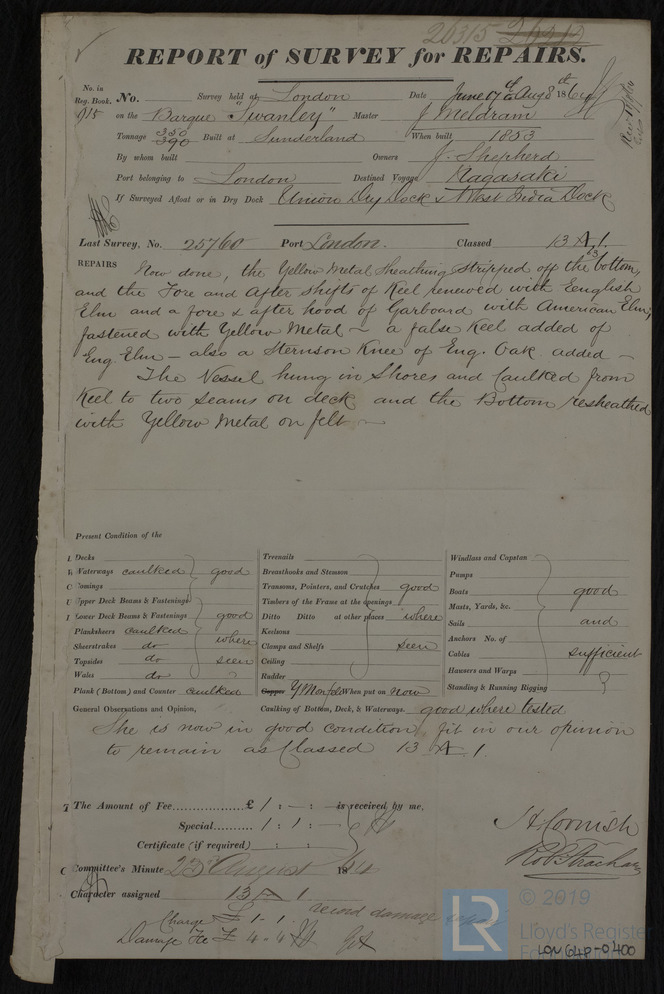 26315
REPORT of SURVEY for REPAIRS.
No. in Reg. Book. No. Survey held at London Date June 17th to Augt 8th 1864
915 on the Barque "Swanley" Master J Meldram
Tonnage 350 390 Built at Sunderland When built 1853
By whom built Owners J. Shepherd
Port belonging to London Destined Voyage Nagasaki
If Surveyed Afloat or in Dry Dock Union Dry Dock & West India Dock
Last Survey, No. 25760 Port London. Classed 13 A 1. 63
REPAIRS Now done, the Yellow Metal Sheathing stripped off the bottom,
and the Fore and After shifts of Keel renewed with English
Elm and a fore & after hood of Garboard with American Elm,
fastened with Yellow Metal – a false Keel added of
Eng. Elm – also a Sternson Knee of Eng. Oak added –
The Vessel hung in Shores and Caulked from
Keel to two seams on deck and the Bottom resheathed
with Yellow Metal on felt –
Present Condition of the
Decks
Waterways caulked good
Comings
Upper Deck Beams & Fastenings
Lower Deck Beams & Fastenings good
Planksheers caulked where
Sheerstrakes do
Topsides do seen
Wales do
Plank (Bottom) and Counter caulked
Treenails
Breasthooks and Stemson
Transoms, Pointers, and Crutches good
Timbers of the Frame at the openings
Ditto Ditto at other places where
Keelsons
Clamps and Shelfs seen
Ceiling
Rudder
Copper Y Metal When put on now
Windlass and Capstan
Pumps
Boats good
Masts, Yards, &c.
Sails and
Anchors No. of
Cables sufficient
Hawsers and Warps
Standing & Running Rigging
General Observations and Opinion, Caulking of Bottom, Deck, & Waterways. good where tested
She is now in good condition, fit in our opinion
to remain as Classed 13 A 1.
The Amount of Fee £ 1 : – : – is received by me,
Special 1 : 1 :
Certificate (if required) : :
H Cornish
Robt Strachan
Committee's Minute 23rd August 1864
Character assigned 13 A 1
Charge £ 1-1 record damage repairs
Damage Fee £ 4-4
© 2019
LR Lloyd's Register Foundation
LON 640-0400